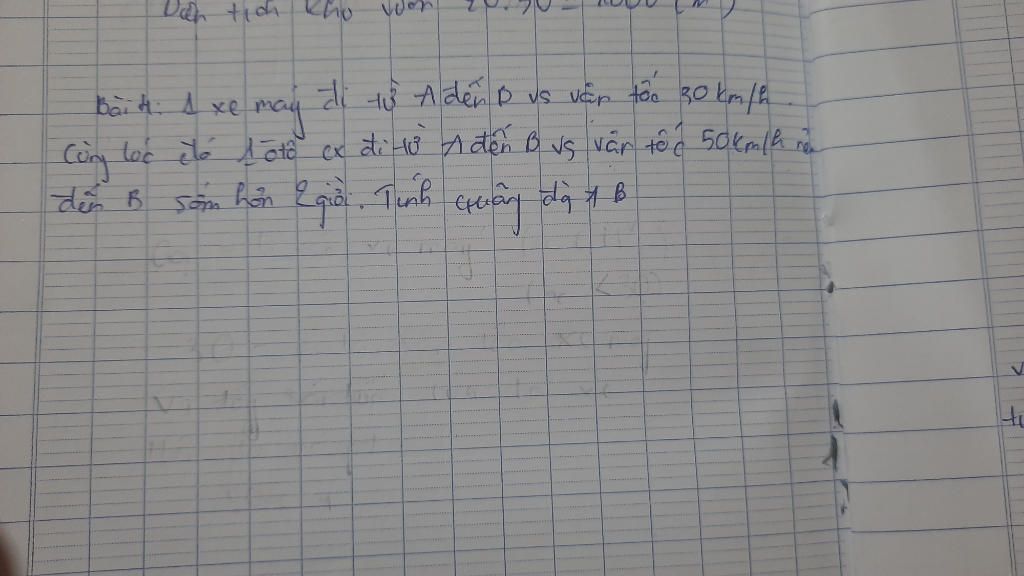 Diện tích khu vườn 20.50 = 1000 (m²)
Bài 4: 1 xe máy đi từ A đến B vs vận tốc 30km/h.
Cùng lúc đó 1 ôtô cx đi từ A đến B vs vận tốc 50km/h nên
đến B sớm hơn 2 giờ. Tính quãng dg A B